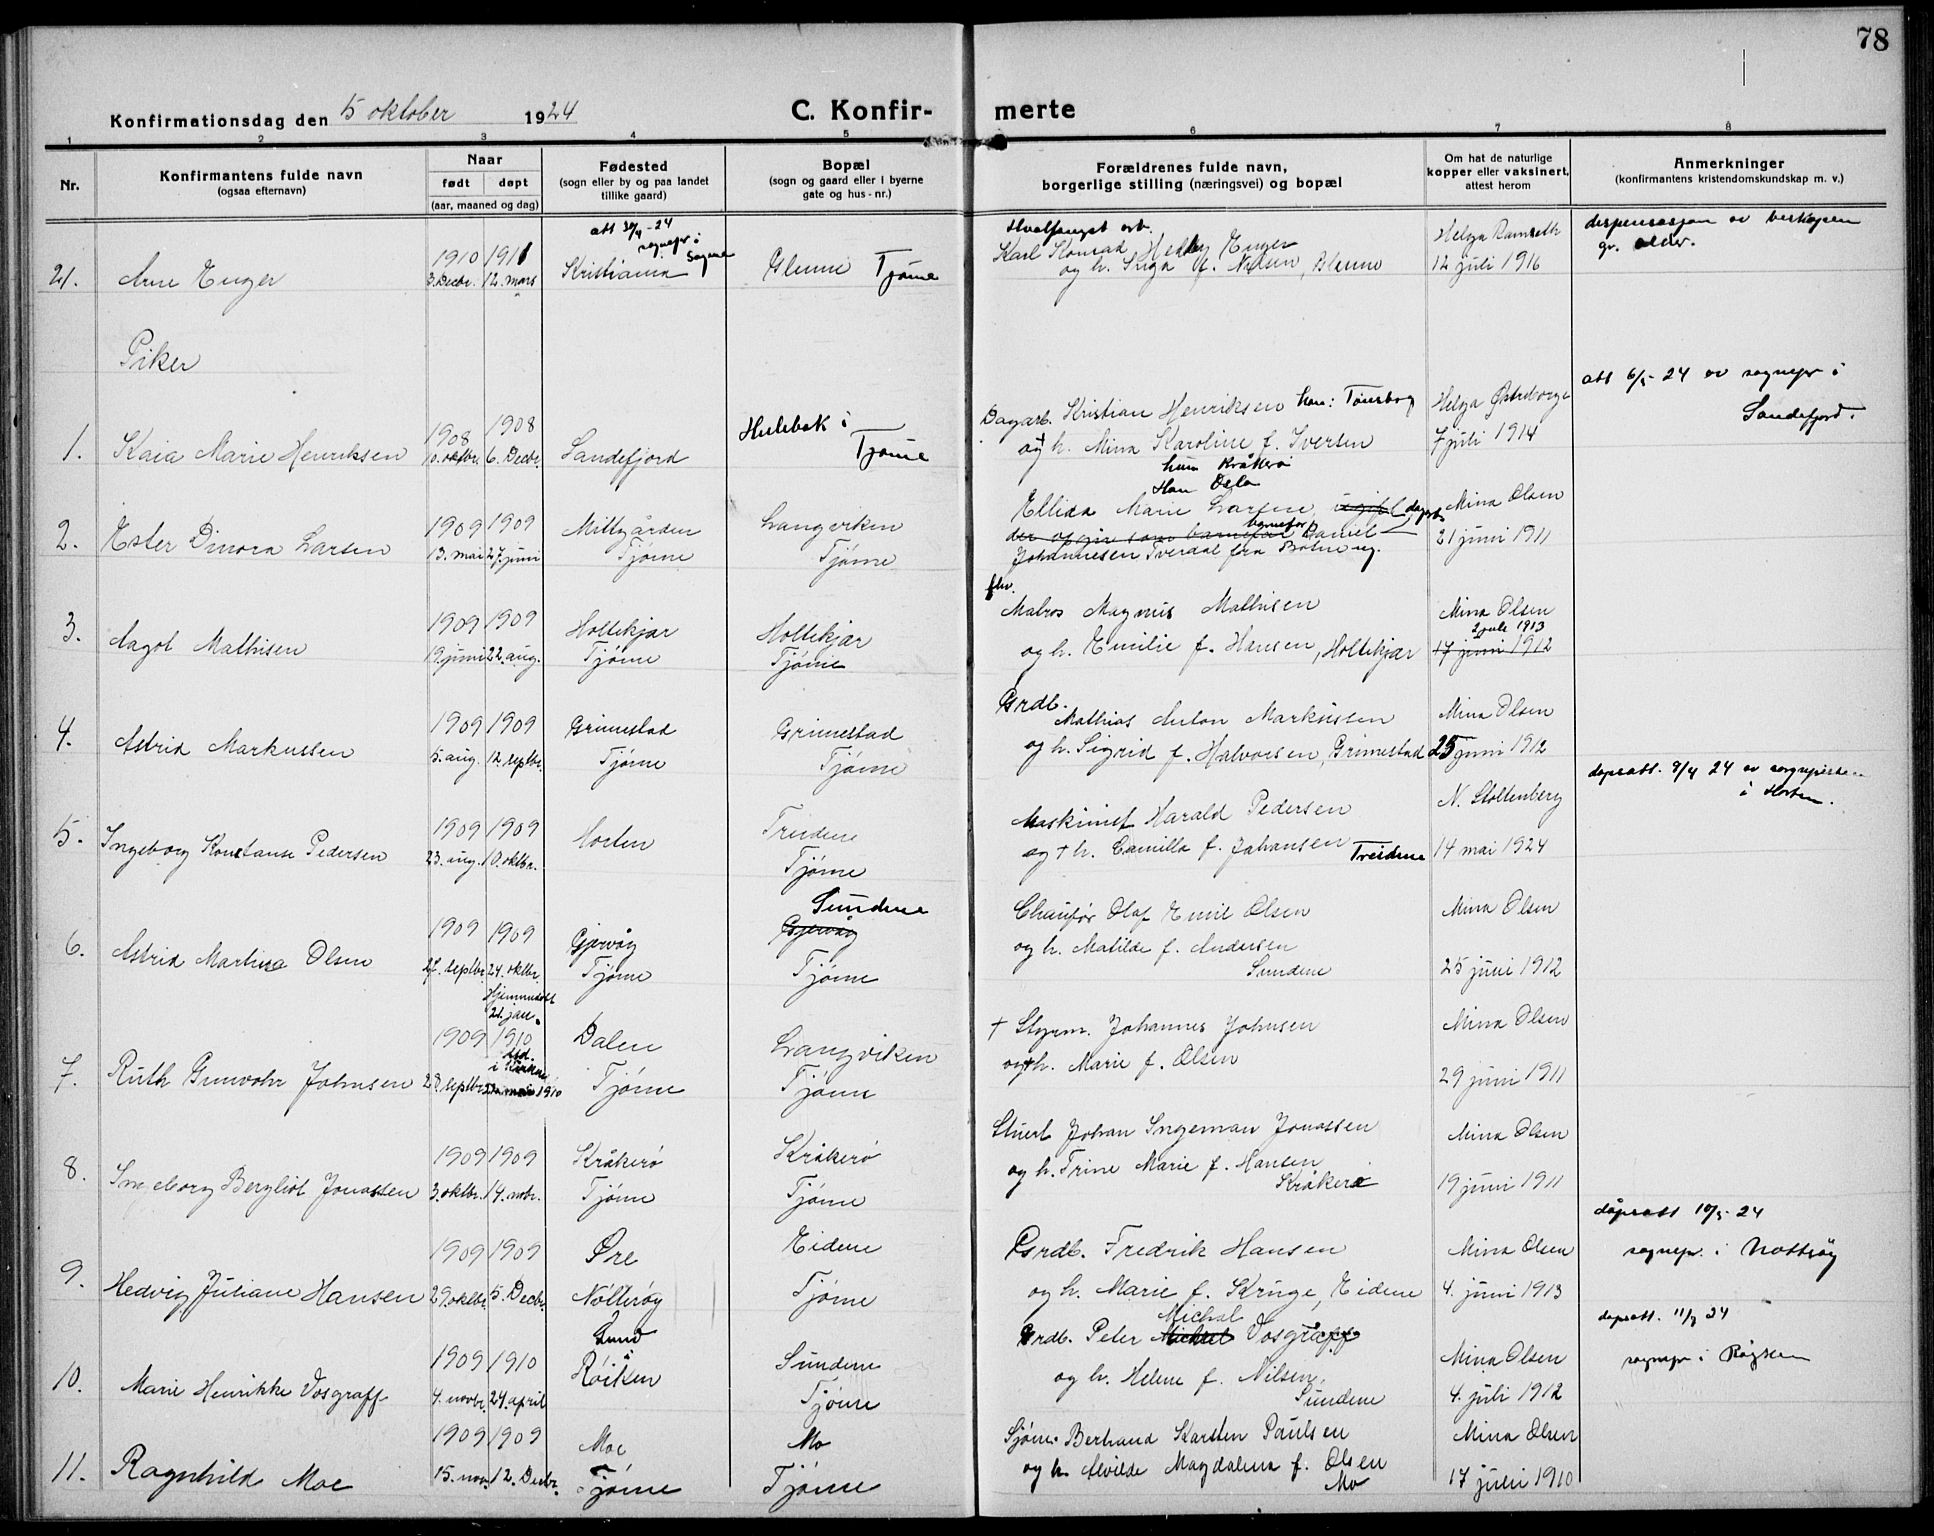 78
Konfirmationsdag den 5 oktober 1924
C. Konfirmerte
1 2 3 4 5 6 7 8
Nr.
Konfirmantens fulde navn
(ogsaa efternavn)
Naar
født døpt
(aar, maaned og dag)
Fødested
(sogn eller by og paa landet
tillike gaard)
Bopæl
(sogn og gaard eller i byerne
gate og hus-nr.)
Forældrenes fulde navn,
borgerlige stilling (næringsvei) og bopæl
Om hat de naturlige
kopper eller vaksinert,
attest herom
Anmerkninger
(konfirmantens kristendomskundskap m. v.)
21. Arne Enger
1910 1911
3. Decbr. 12. mars
Kristiania
Glenne Tjøme
Hvalfangst arb.
Karl Konrad Enger
og h. Inga f.
Helga Ramseth
12 juli 1916
dispensasjon av biskopen
gr. alder.
Piker
1. Kaia Marie Henriksen
1908 1908
10. oktbr. 6. Decbr.
Sandefjord
Hulebak i
Tjøme
Dagarb. Kristian Henriksen han: Tønsberg
og h. Mina Karoline f. Iversen
hun Kråkerø
Helga Østeborge
7 juli 1914
att 6/5-24 av sognepr i
Sandefjord.
2. Ester Dinora Larsen
1909 1909
13. mai 27. juni
Midtgården
Tjøme
Langviken
Tjøme
Han Oslo
Ellida Marie Larsen, ugift
der opgir som barnefar Daniel
Johannesen Tverdal fra
Mina Olsen
21 juni 1911
3. Aagot Mathisen
1909 1909
19. juni 22. aug.
Holtekjær
Tjøme
Holtekjær
Tjøme
fhv.
Matros Magnus Mathisen
og h. Emilie f. Hansen, Holtekjær
Mina Olsen
2 juli 1913
17 juni 1912
4. Astrid Markussen
1909 1909
5. aug. 12. septbr.
Grimestad
Tjøme
Grimestad
Tjøme
Grdb.
Mathias Anton Markussen
og h. Sigrid f. Halvorsen, Grimestad
Mina Olsen
25 juni 1912
5. Ingeborg Konstanse Pedersen
1909 1909
23. aug. 10. oktbr.
Horten
Treidene
Tjøme
Maskinist Harald Pedersen
og † h. Camilla f. Johansen Treidene
N. Stoltenberg
14 mai 1924
dåpsatt. 9/4 24 av sognepresten
i Horten.
6. Astrid Martine Olsen
1909 1909
27. septbr. 24. oktbr.
Gjervåg
Tjøme
Sundene
Gjervåg
Tjøme
Chaufør Olaf Emil Olsen
og h. Matilde f. Andersen
Sundene
Mina Olsen
25 juni 1912
7. Ruth Gunvohr Johnsen
Hjemmedøbt
21. jan.
1909 1910
28. septbr.
Dalen
Tjøme
Langviken
Tjøme
† Styrm. Johannes Johnsen
og † h. Marie f. Olsen
Mina Olsen
29 juni 1911
8. Ingeborg Bergliot Jonassen
1909 1909
3. oktbr. 14. nvbr.
Kråkerø
Tjøme
Kråkerø
Tjøme
Stuert Johan Ingeman Jonassen
og h. Trine Marie f. Hansen
Kråkerø
Mina Olsen
19 juni 1911
9. Hedvig Juliane Hansen
1909 1909
29. oktbr. 5. Decbr.
Øre
Nøtterøy
Eidene
Tjøme
Grdb. Fredrik Hansen
og h. Marie f. Kruge, Eidene
Mina Olsen
4. juni 1913
dåpsatt 10/5-24
sognepr. i Nøtterøy
10. Marie Henrikke Vosgraff
1909 1910
4. novbr. 24. april
Lund
i
Røiken
Sundene
Tjøme
Michal
Grdb. Peter Michael Vosgraff
og h. Helene f. Nilsen,
Sundene
Mina Olsen
4. juli 1912
dåpsatt. 11/9 24
sognepr i Røyken
11. Ragnhild Moe
1909 1909
15. nov. 12. Decbr.
Moe
Tjøme
Mo
Tjøme
Sjøm. Bertrand Karsten Paulsen
og h. Alvilde Magdalena f. Olsen
Mo
Mina Olsen
17 juli 1910